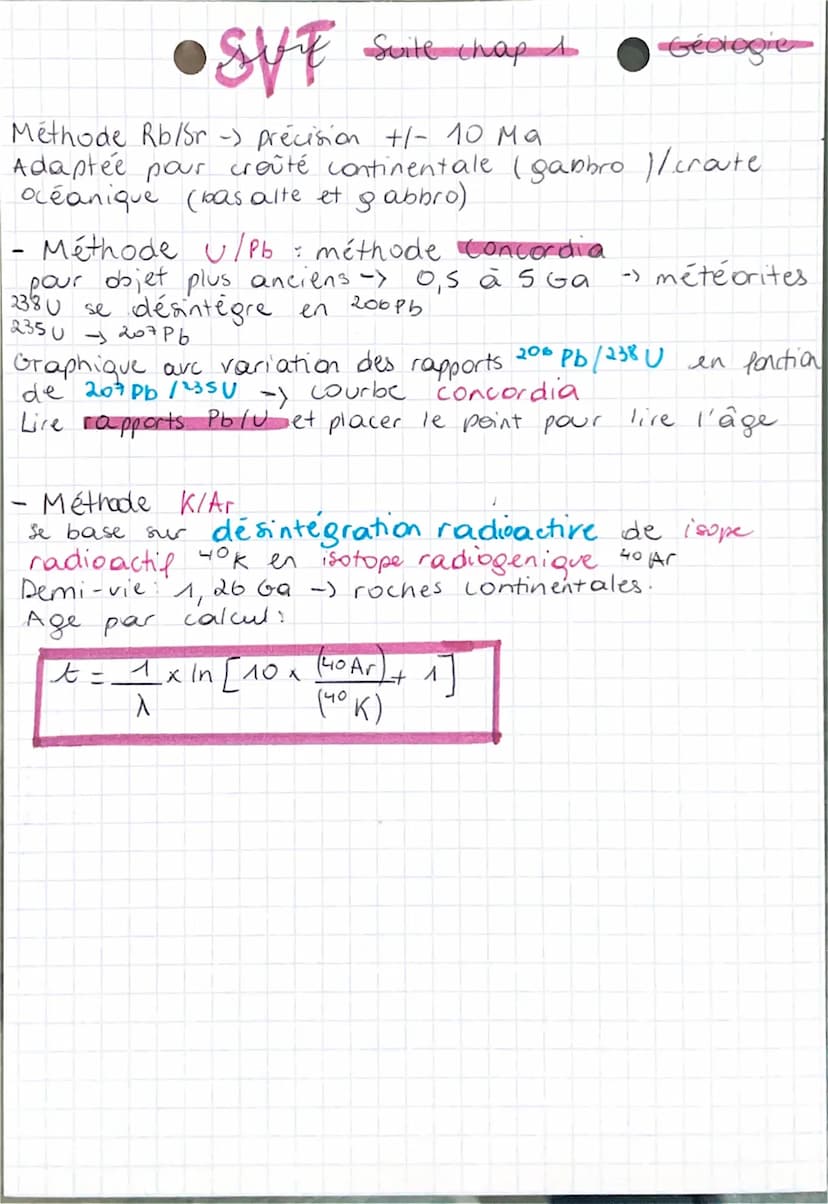 SVT svt Suite chap 1 Géologie
Méthode Rb/Sr -> précision +/- 10 Ma
Adaptée pour croûté continentale (gabbro)/croute
océanique (basalte et gabbro)
- Méthode U/Pb : méthode concordia
pour objet plus anciens -> 0,5 à 5 Ga -> météorites
238U se désintègre en 206Pb
235U -> 207Pb
Graphique avc variation des rapports 206 Pb/238 U en fonction
de 207Pb/235U -> courbe concordia
Lire rapports Pb/U et placer le point pour lire l'âge
- Méthode K/Ar
Se base sur désintégration radioactive de isope
radioactif ⁴⁰K en isotope radiogenique ⁴⁰Ar
Demi-vie : 1,26 Ga -> roches continentales.
Age par calcul :
t = 1/λ x ln [10 x (40Ar)/(⁴⁰K) + 1]